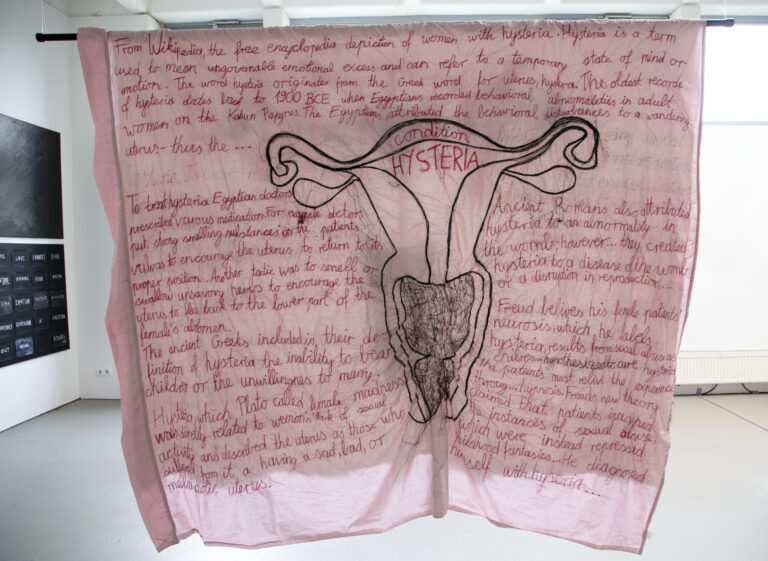 From Wikipedia, the free encyclopedia depiction of women with hysteria. Hysteria is a term
used to mean ungovernable emotional excess and can refer to a temporary state of mind or
emotion. The word hystria originates from the Greek word for uterus, hystera. The oldest recorde
of hysteria dates back to 1900 BCE when Egyptians recorded behavioral abnormalities in adult
women on the Kahun Papyrus. The Egyptians attributed the behavioral disturbances to a wandering
uterus - thus the ...
condition
HYSTERIA
To treat hysteria Egyptian doctors
prescribed various medication. For example doctors
put strong smelling substances on the patients
vulvas to encourage the uterus to return to its
proper position. Another tactic was to smell or
swallow unsavory herbs to encourage the
uterus to flee back to the lower part of the
female's abdomen.
The ancient Greeks included in their de-
finition of hysteria the inability to bear
children or the unwillingness to marry.
which Plato called female madness
was directly related to women's lack of sexual
activity and described the uterus as those who
from it a having a sad, bad, or
uterus.
Ancient Romans also attributed
hysteria to an abnormality in
the womb, however... they created
hysteria to a disease of the womb
or a disruption in reproduction...
Freud belives his female patients'
neurosis, which he labels
hysteria, results from sexual abuse as
children hypothesized to cure hysteria
the patients must relive the experience
theory... hypnosis Freuds new theory
claimed that patients imagined
the instances of sexual abuse,
which were instead repressed
childhood fantasies... He diagnosed
himself with hysteria...
LOVE
EMOTION
OUT